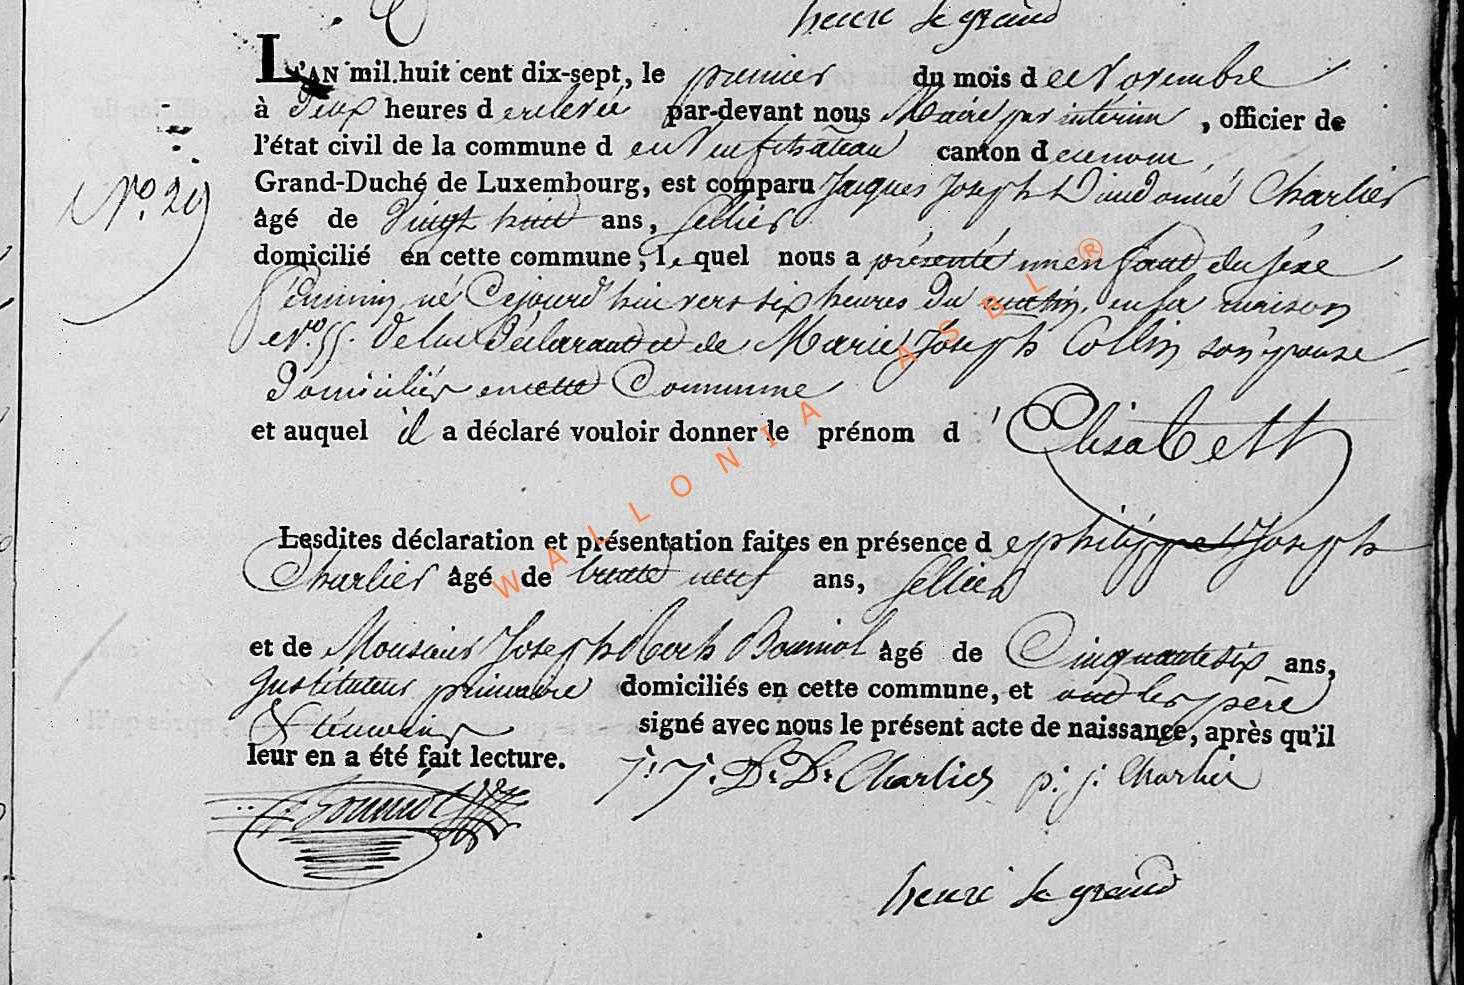 henri le grand
L'AN mil huit cent dix-sept, le premier du mois de Novembre
à Deux heures de relevée par-devant nous Maire par intérim, officier de
l'état civil de la commune de Neufchâteau canton de ce nom,
Grand-Duché de Luxembourg, est comparu Jacques Joseph Dieudonné Charlier
N.o 29
âgé de vingt huit ans, sellier
domicilié en cette commune, lequel nous a présenté un enfant du sexe
féminin, né Cejourd'hui vers six heures du matin, en sa maison
N.o 55. de lui Déclarant et de Marie Joseph Collin son épouse
domiciliés en cette Commune
et auquel il a déclaré vouloir donner le prénom d'Elisabeth
Lesdites déclaration et présentation faites en présence de philippe Joseph
Charlier âgé de trente neuf ans, sellier
et de Monsieur Joseph Roch Bouniol âgé de Cinquante six ans,
Instituteur primaire domiciliés en cette commune, et ont les père
& témoins signé avec nous le présent acte de naissance, après qu'il
leur en a été fait lecture. J. J. D. D. Charlier p. j. Charlier
Bouniol
henri le grand
WALLONIA ASBL ®